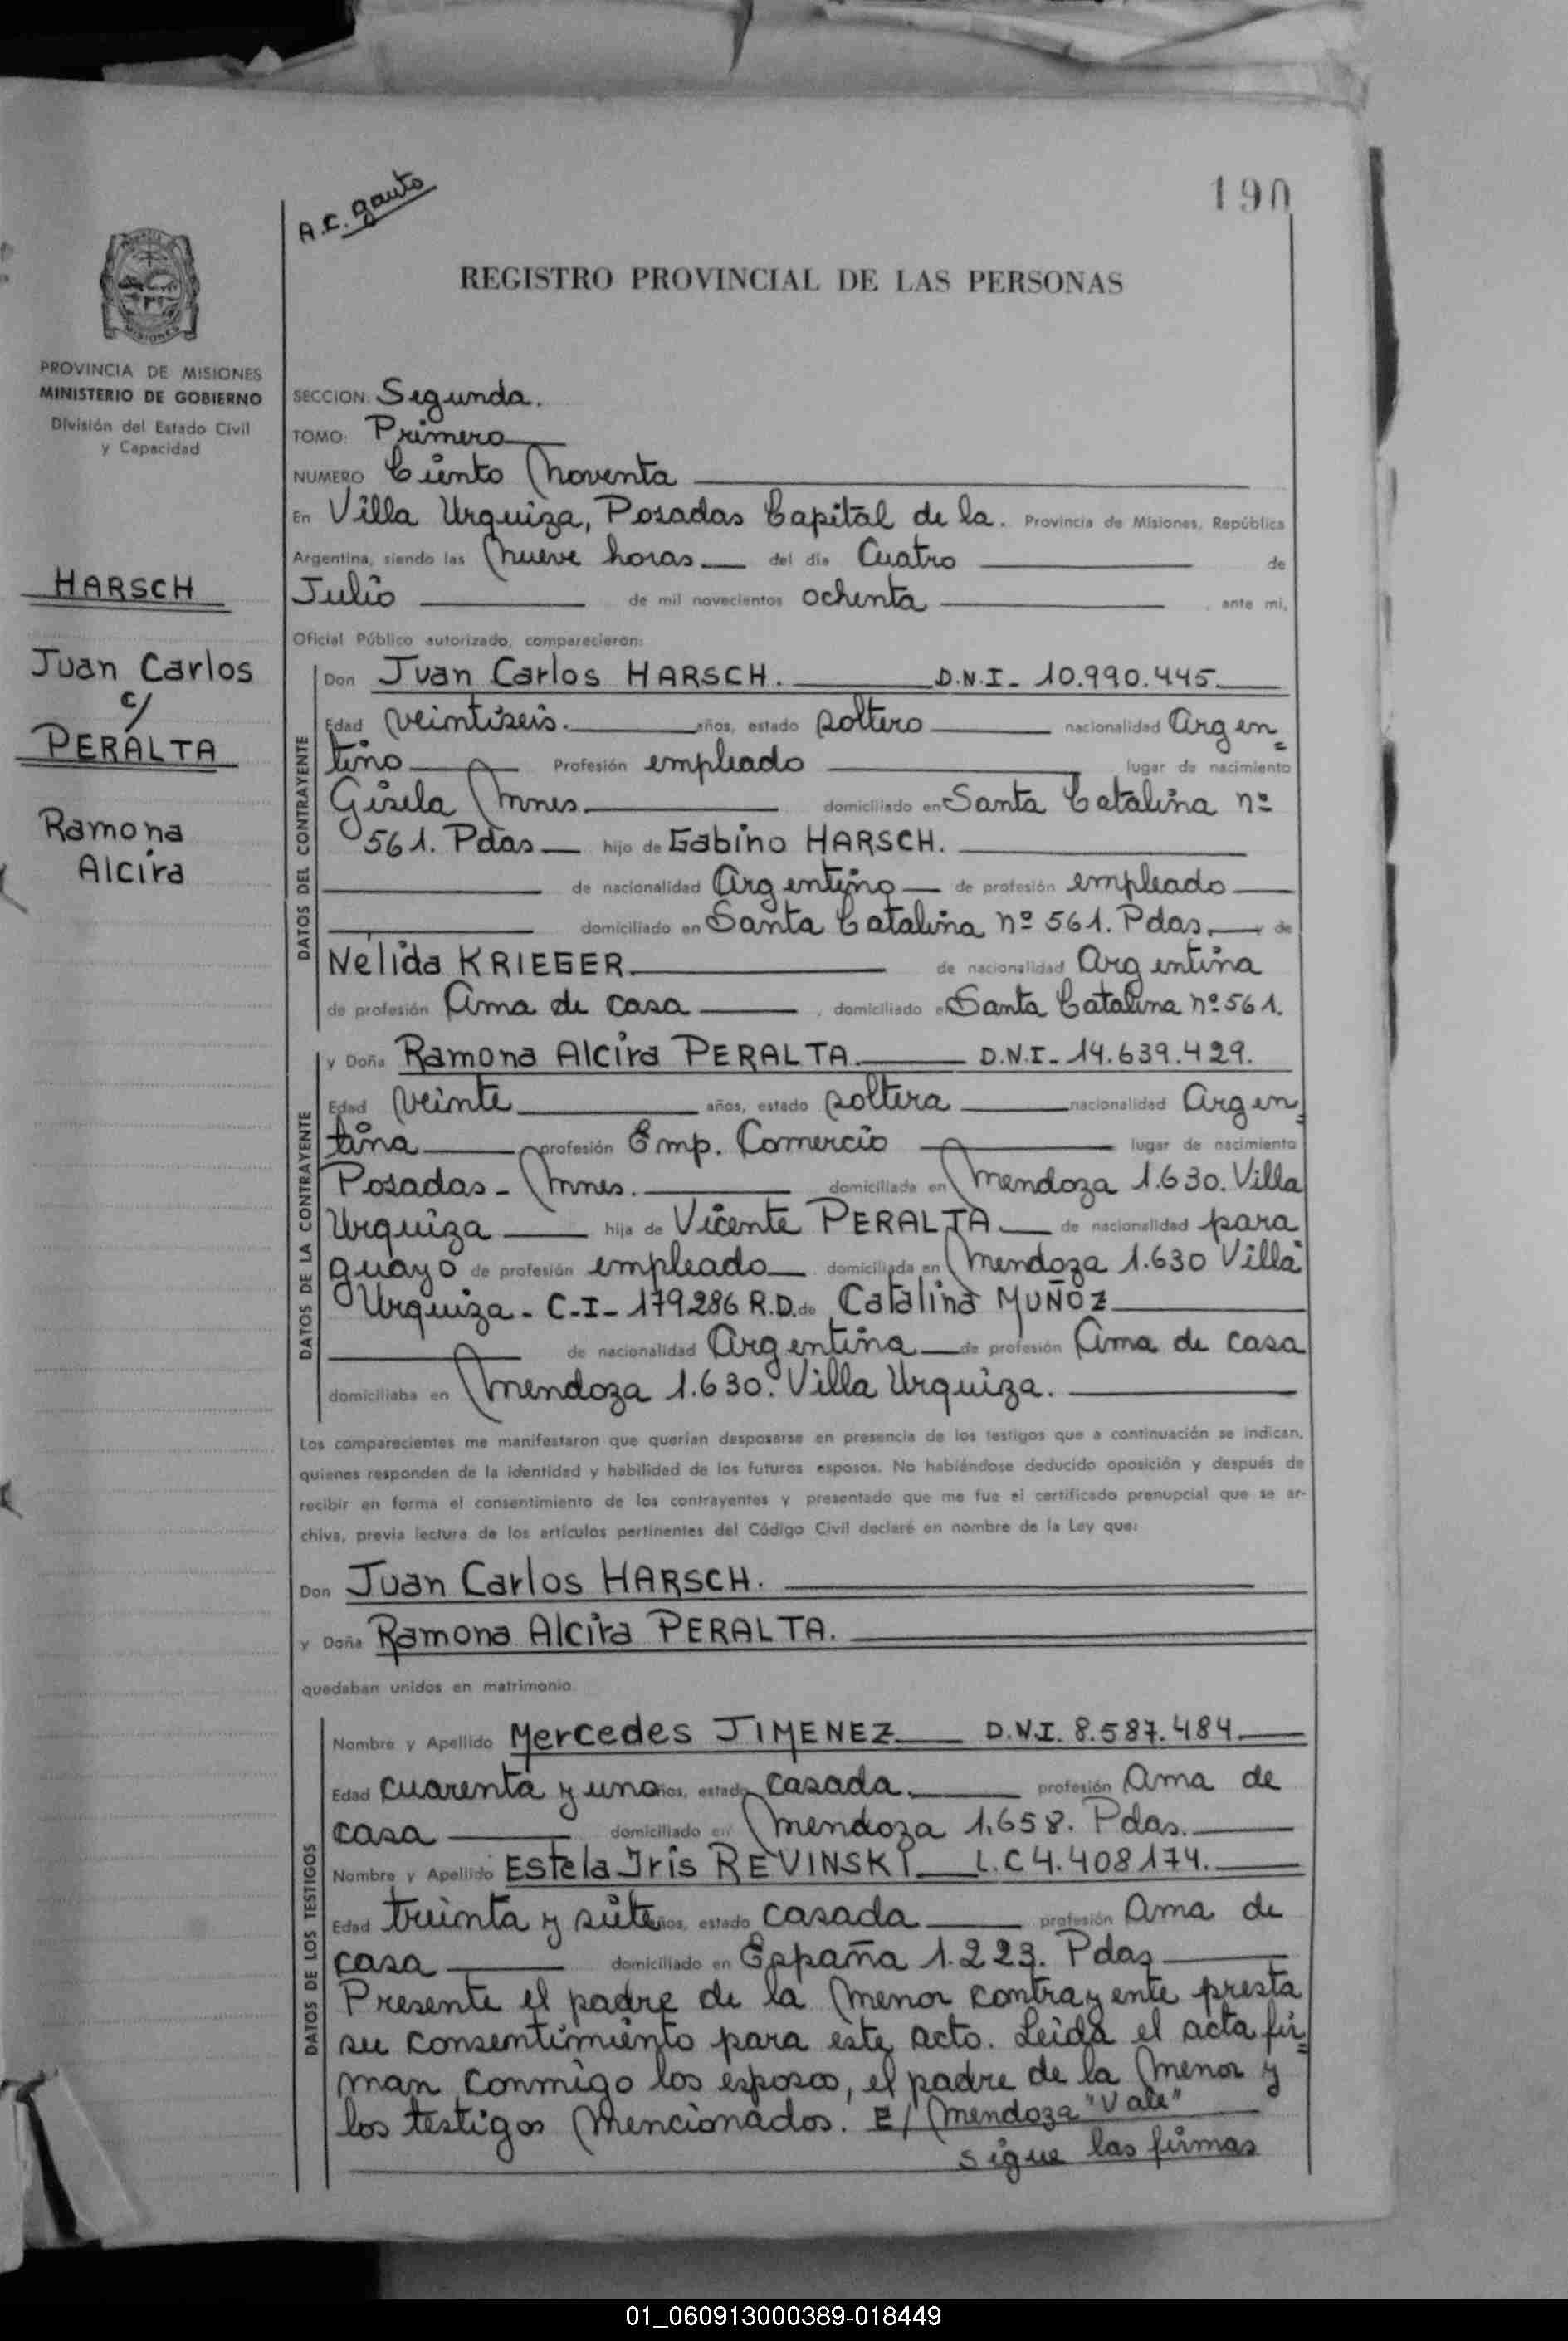 A.C. Gauto
190
REGISTRO PROVINCIAL DE LAS PERSONAS
MISIONES
PROVINCIA DE MISIONES
MINISTERIO DE GOBIERNO
División del Estado Civil
y Capacidad
HARSCH
Juan Carlos
c/
PERALTA
Ramona
Alcira
SECCION: Segunda.
TOMO: Primero
NUMERO Ciento Noventa
En Villa Urquiza, Posadas Capital de la. Provincia de Misiones, República
Argentina, siendo las Nueve horas del día Cuatro de
Julio de mil novecientos ochenta ante mi,
Oficial Público autorizado, comparecieron:
DATOS DEL CONTRAYENTE
Don Juan Carlos HARSCH. D.N.I- 10.990.445.
Edad Veintiseis. años, estado soltero nacionalidad Argen=
tino Profesión empleado lugar de nacimiento
Gisela Mnes. domiciliado en Santa Catalina nº
561. Pdas hijo de Gabino HARSCH.
de nacionalidad Argentino de profesión empleado
domiciliado en Santa Catalina nº 561. Pdas, de
Nelida KRIEGER. de nacionalidad Argentina
de profesión Ama de casa , domiciliado e Santa Catalina nº 561.
DATOS DE LA CONTRAYENTE
y Doña Ramona Alcira PERALTA. D.N.I- 14.639.429.
Edad Veinte años, estado soltera nacionalidad Argen=
tina profesión Emp. Comercio lugar de nacimiento
Posadas- Mnes. domiciliada en Mendoza 1.630. Villa
Urquiza hija de Vicente PERALTA de nacionalidad para
guayo de profesión empleado domiciliada en Mendoza 1.630 Villa
Urquiza- C-I- 179.286 R.D. de Catalina MUÑOZ
de nacionalidad Argentina de profesión Ama de casa
domiciliaba en Mendoza 1.630. Villa Urquiza.
Los comparecientes me manifestaron que querían desposarse en presencia de los testigos que a continuación se indican,
quienes responden de la identidad y habilidad de los futuros esposos. No habiéndose deducido oposición y después de
recibir en forma el consentimiento de los contrayentes y presentado que me fue el certificado prenupcial que se ar-
chiva, previa lectura de los artículos pertinentes del Código Civil declaré en nombre de la Ley que:
Don Juan Carlos HARSCH.
y Doña Ramona Alcira PERALTA.
quedaban unidos en matrimonio.
DATOS DE LOS TESTIGOS
Nombre y Apellido Mercedes JIMENEZ D.N.I. 8.587.484
Edad cuarenta y uno años, estado casada. profesión Ama de
casa domiciliado en Mendoza 1.658. Pdas.
Nombre y Apellido Estela Iris REVINSKI L.C 4.408174.
Edad treinta y siete años, estado casada profesión Ama de
casa domiciliado en España 1.223. Pdas
Presente el padre de la Menor contrayente presta
su consentimiento para este acto. Leida el acta fir=
man conmigo los esposos, el padre de la Menor y
los testigos Mencionados. E/ Mendoza "Vale"
sigue las firmas
01_060913000389-018449